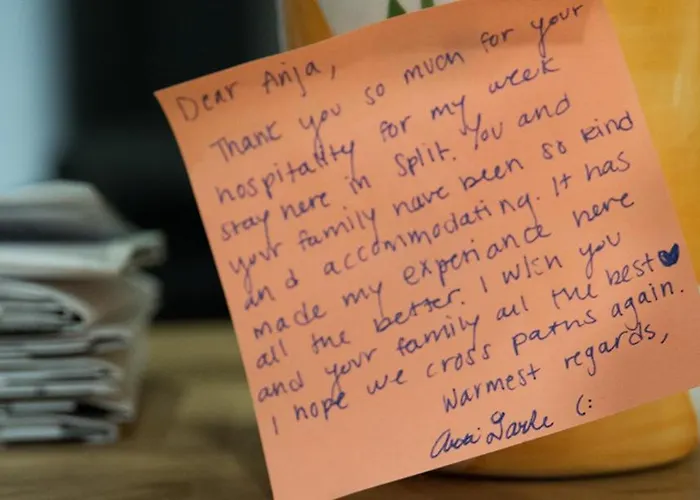 Dear Anja,
Thank you so much for your
hospitality for my week
stay here in Split. You and
your family have been so kind
and accommodating. It has
made my experiance here
all the better. I wish you
and your family all the best
I hope we cross paths again.
Warmest regards,
(: